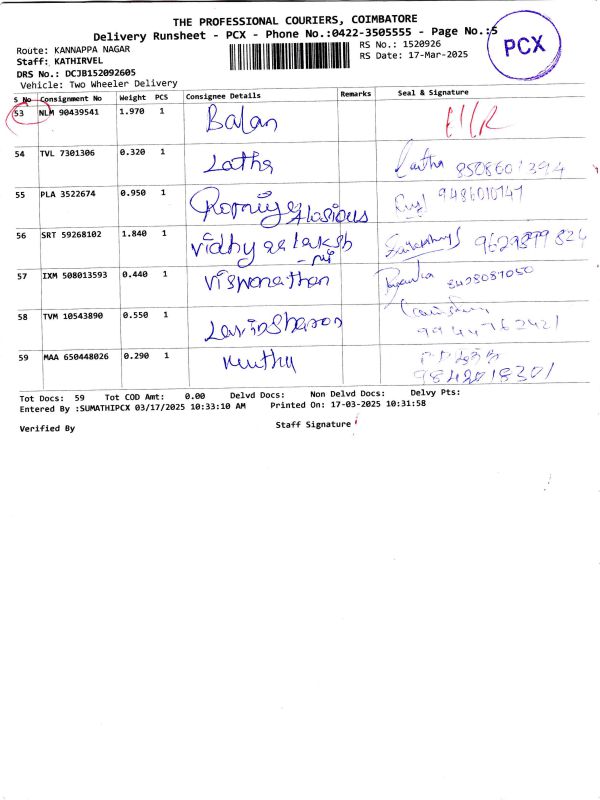 THE PROFESSIONAL COURIERS, COIMBATORE
Delivery Runsheet - PCX - Phone No.:0422-3505555 - Page No.:5
PCX
Route: KANNAPPA NAGAR
RS No.: 1520926
Staff: KATHIRVEL
RS Date: 17-Mar-2025
DRS No.: DCJB152092605
Vehicle: Two Wheeler Delivery
S No Consignment No Weight PCS Consignee Details Remarks Seal & Signature
53 NLM 90439541 1.970 1 Balan
54 TVL 7301306 0.320 1 Latha Latha 8508601394
55 PLA 3522674 0.950 1 9486010747
56 SRT 59268102 1.840 1 9629899824
57 IXM 508013593 0.440 1 Viswanathan
58 TVM 10543890 0.550 1 9944762421
59 MAA 650448026 0.290 1 Muthu 9842018301
Tot Docs: 59 Tot COD Amt: 0.00 Delvd Docs: Non Delvd Docs: Delvy Pts:
Entered By :SUMATHIPCX 03/17/2025 10:33:10 AM Printed On: 17-03-2025 10:31:58
Verified By Staff Signature